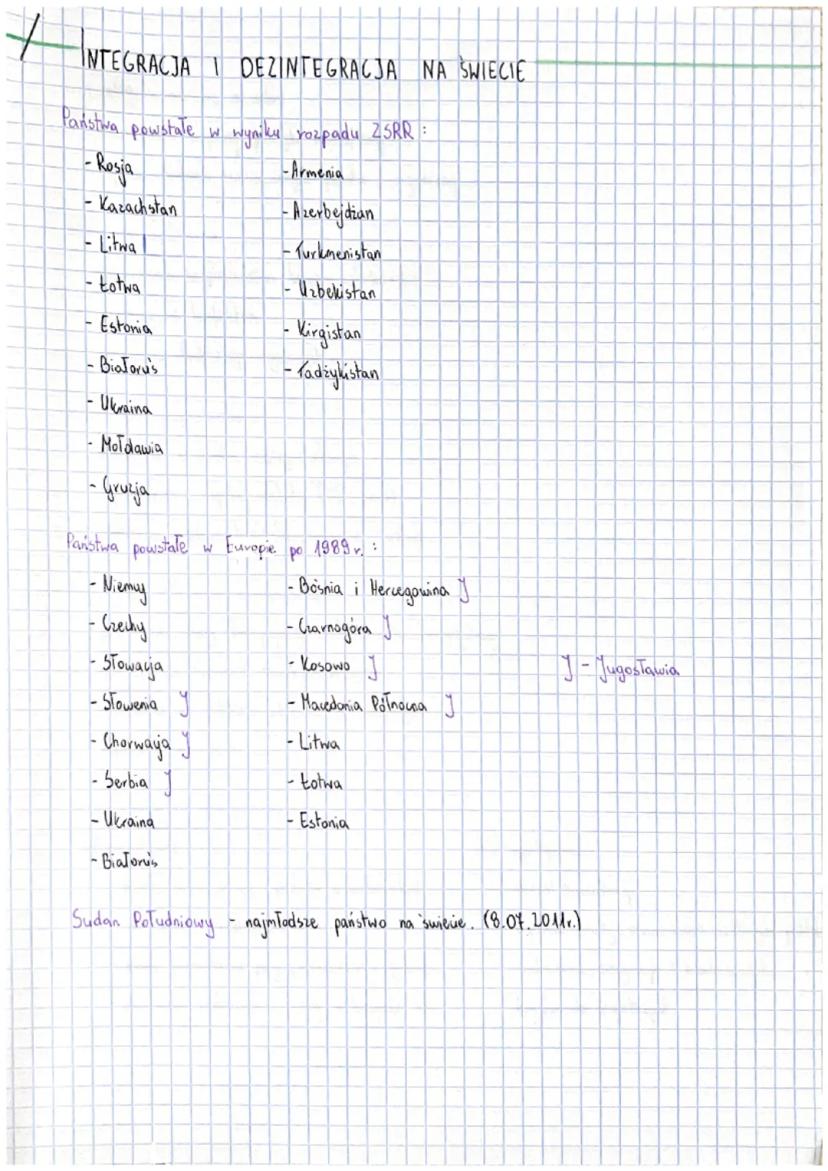 INTEGRACJA I DEZINTEGRACJA NA ŚWIECIE
Państwa powstałe w wyniku rozpadu ZSRR :
- Rosja
- Kazachstan
- Litwa
- Łotwa
- Estonia
- Białoruś
- Ukraina
- Mołdawia
- Gruzja
- Armenia
- Azerbejdżan
- Turkmenistan
- Uzbekistan
- Kirgistan
- Tadżykistan
Państwa powstałe w Europie po 1989 r. :
- Niemcy
- Czechy
- Słowacja
- Słowenia J
- Chorwacja J
- Serbia J
- Ukraina
- Białoruś
- Bośnia i Hercegowina J
- Czarnogóra J
- Kosowo J
- Macedonia Północna J
- Litwa
- Łotwa
- Estonia
J - Jugosławia
Sudan Południowy - najmłodsze państwo na świecie. (8.07.2011r.)